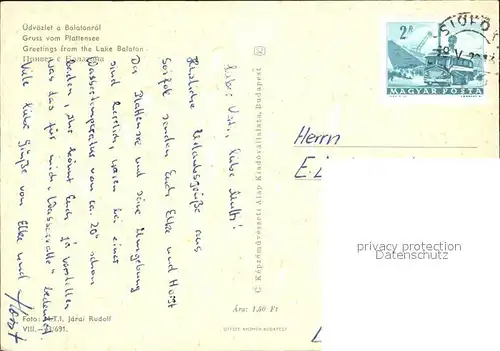 Üdvözlet a Balatonról
Gruss vom Plattensee
Greetings from the Lake Balaton
Привет с Балатона
Liebe Vati, liebe Mutti!
Herzliche Urlaubsgrüße aus
Siofok senden Euch Elke und Horst
Der Plattensee und seine Umgebung
sind herrlich, waren bei einer
Wassertemperatur von ca. 20° schon
baden, Ihr könnt Euch ja vorstellen
was das für mich "Wasserratte" bedeutet.
Viele liebe Grüße von Elke und Horst
Foto: M.T.I. Járai Rudolf
© Képzőművészeti Alap Kiadóvállalata, Budapest
Ára: 1,50 Ft
OFFSET-NYOMDA BUDAPEST
2 Ft
MAGYAR POSTA
SIÓFOK
Herrn
privacy protection
Datenschutz